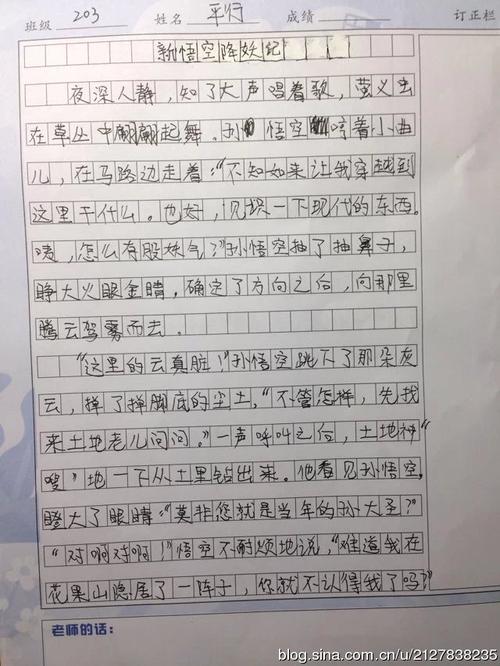 班级 203 姓名 平行 成绩 订正栏
新悟空降妖记
夜深人静，知了大声唱着歌，萤火虫
在草丛中翩翩起舞。孙悟空哼着小曲
儿，在马路边走着：“不知如来让我穿越到
这里干什么。也好，见识一下现代的东西。
咦，怎么有股妖气？”孙悟空抽了抽鼻子，
睁大火眼金睛，确定了方向之后，向那里
腾云驾雾而去。
“这里的云真脏！”孙悟空跳下了那朵灰
云，掸了掸脚底的尘土，“不管怎样，先找
来土地老儿问问。”一声呼叫之后，土地神“
嗖”地一下从土里钻出来。他看见孙悟空，
瞪大了眼睛：“莫非您就是当年的孙大圣？”
“对啊对啊！”悟空不耐烦地说，“难道我在
花果山隐居了一阵子，你就不认得我了吗？”
老师的话：
blog.sina.com.cn/u/2127838235